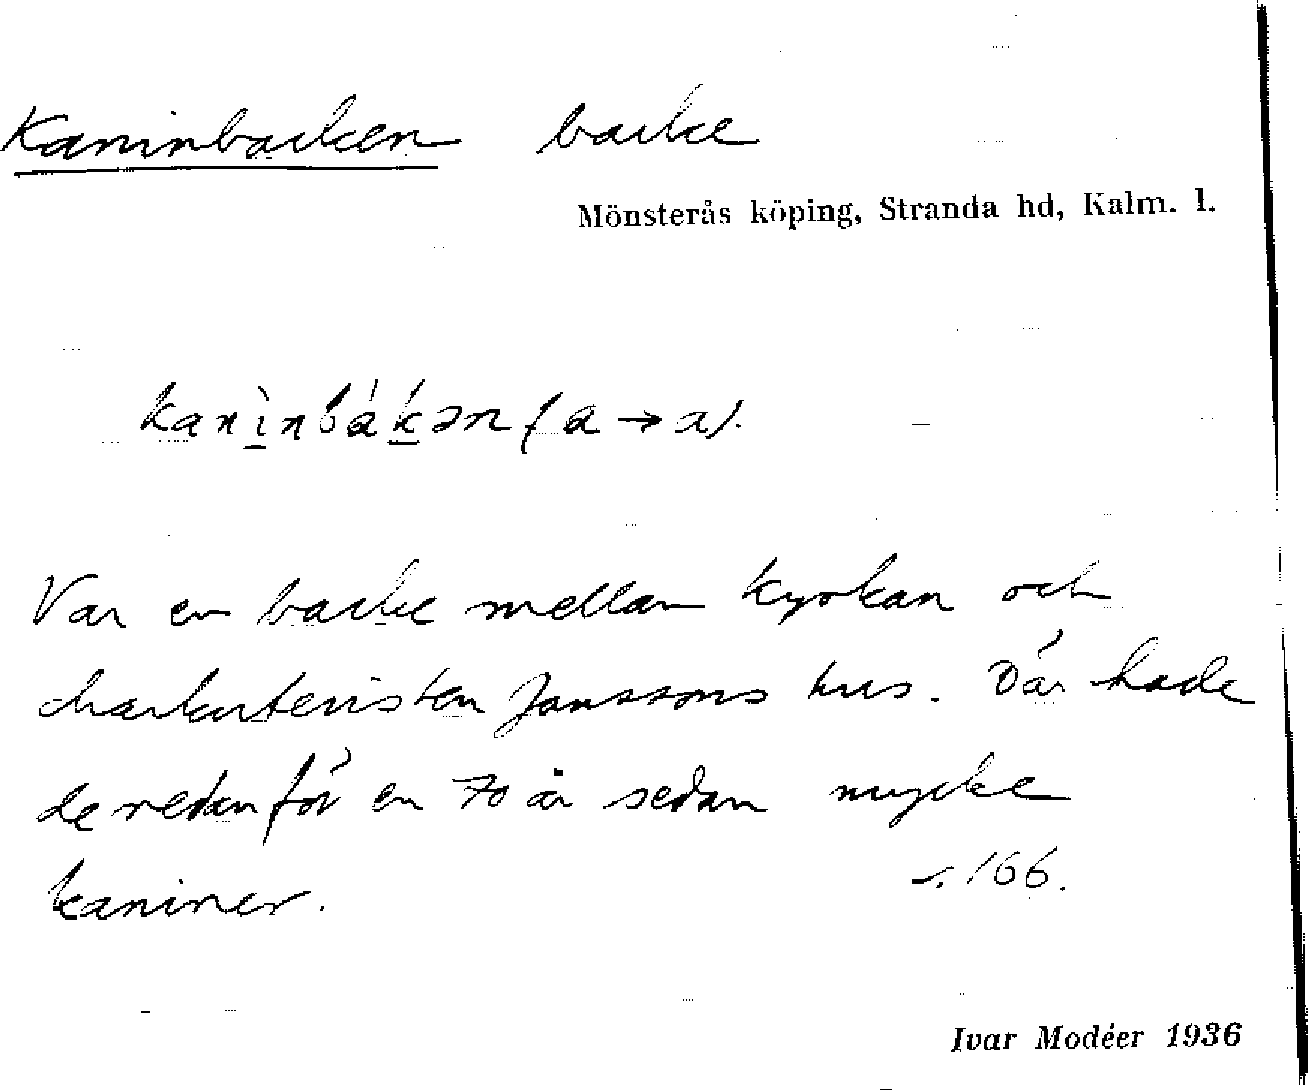 Kaninbacken backe
Mönsterås köping, Stranda hd, Kalm. l.
kanìnbákən (a → a).
Var en backe mellan kyrkan och
charkuteristen Janssons hus. Där hade
de redan för en 70 år sedan mycke
kaniner.
s. 166.
Ivar Modéer 1936